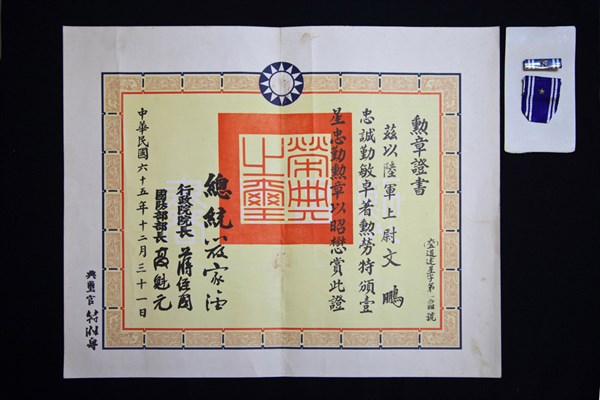 勲章證書
茲以陸軍上尉文鵬
忠誠勤敏卓著勲勞特頒壹
星忠勤勲章以昭懋賞此證
榮典之璽
總統嚴家淦
行政院院長蔣經國
國防部部長高魁元
中華民國六十五年十二月三十一日
典璽官